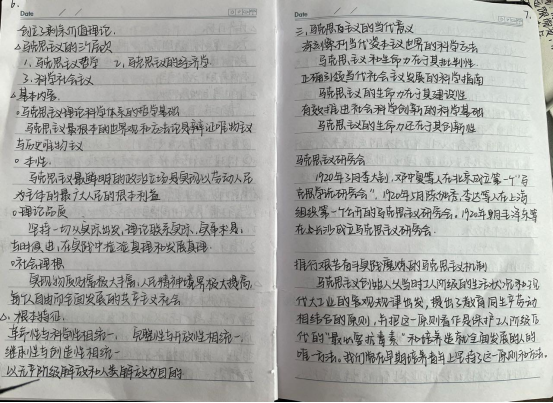 6.
Date
创立了剩余价值理论.
△马克思主义的三个层次
1、马克思主义哲学 2、马克思主义的经济学
3、科学社会主义
△基本内容.
○马克思主义理论科学体系的哲学基础
马克思主义最根本的世界观和方法论是辩证唯物主义
与历史唯物主义
○本性.
马克思主义最鲜明的政治立场是实现以劳动人民
为主体的最广大人民的根本利益
○理论品质
坚持一切从实际出发,理论联系实际,实事求是,
与时俱进,在实践中检验真理和发展真理.
○社会理想
实现物质财富极大丰富,人民精神境界极大提高,
每个人自由而全面发展的共产主义社会
△根本特征.
革命性与科学性相统一. 完整性与开放性相统一.
继承性与创造性相统一
以无产阶级解放和人类解放为目的
Date
7.
三、马克思主义的当代意义
当代资本主义世界的科学方法
马克思主义和生命力在于其批判性.
正确引领当代社会主义发展的科学指南
马克思主义的生命力在于其建设性
有效推进社会科学创新的科学基础
马克思主义的生命力还在于其创新性
马克思主义研究会
1920年3月李大钊,邓中夏等人在北京成立第一个"马
克思学说研究会". 1920年5月陈独秀,李达等人在上海
组织第一个公开的马克思主义研究会. 1920年8月毛泽东等
在长沙成立马克思主义研究会.
推行艰苦奋斗实践磨炼的马克思主义机制
马克思主义创始人从当时工人阶级的生活状况和现
代大工业的客观规律出发,提出了教育同生产劳动
相结合的原则,并把这一原则看作是保护工人阶级后
代的"最必要抗毒素"和培养造就全面发展的人的
唯一方法. 我们党在早期培养青年上坚持了这一原则和方法.